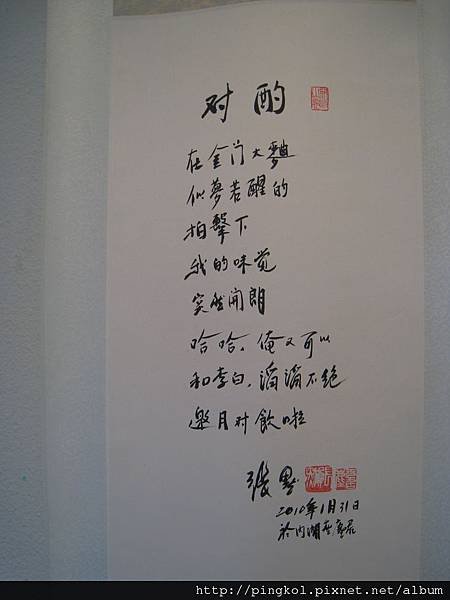 对酌
在金门大麯
似夢若醒的
拍擊下
我的味觉
突然開朗
哈哈，俺又可以
和李白，滔滔不绝
邀月对飲啦
張默
2010年1月31日
於內湖
http://pingkol.pixnet.net/album